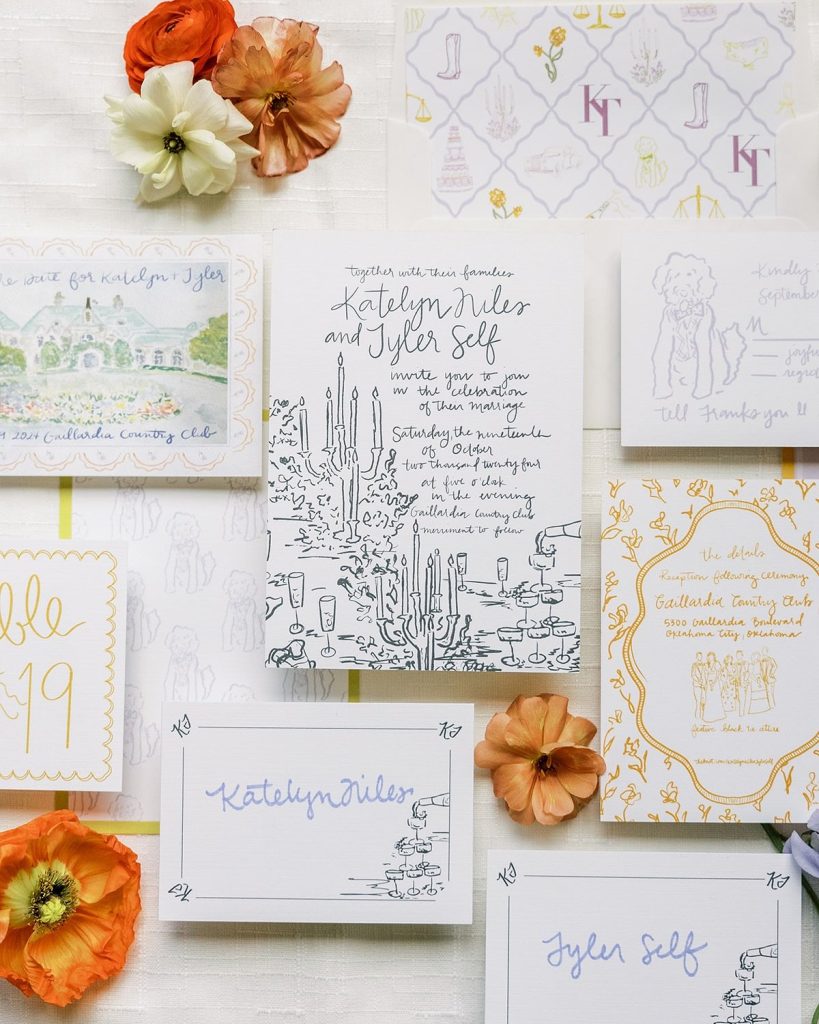 KT
KT
the Date for Katelyn + Tyler
2024 Gaillardia Country Club
together with their families
Katelyn Niles
and Tyler Self
invite you to join
in the celebration
of their marriage
Saturday, the nineteenth
of October
two thousand twenty four
at five o'clock
in the evening
Gaillardia Country Club
merriment to follow
Kindly
September
M
joyful
regret
tell Franks you !!
ble
19
the details
Reception following ceremony
Gaillardia Country Club
5300 Gaillardia Boulevard
Oklahoma City, Oklahoma
festive black tie attire
KS
KS
Katelyn Niles
KS
KS
KS
Tyler Self